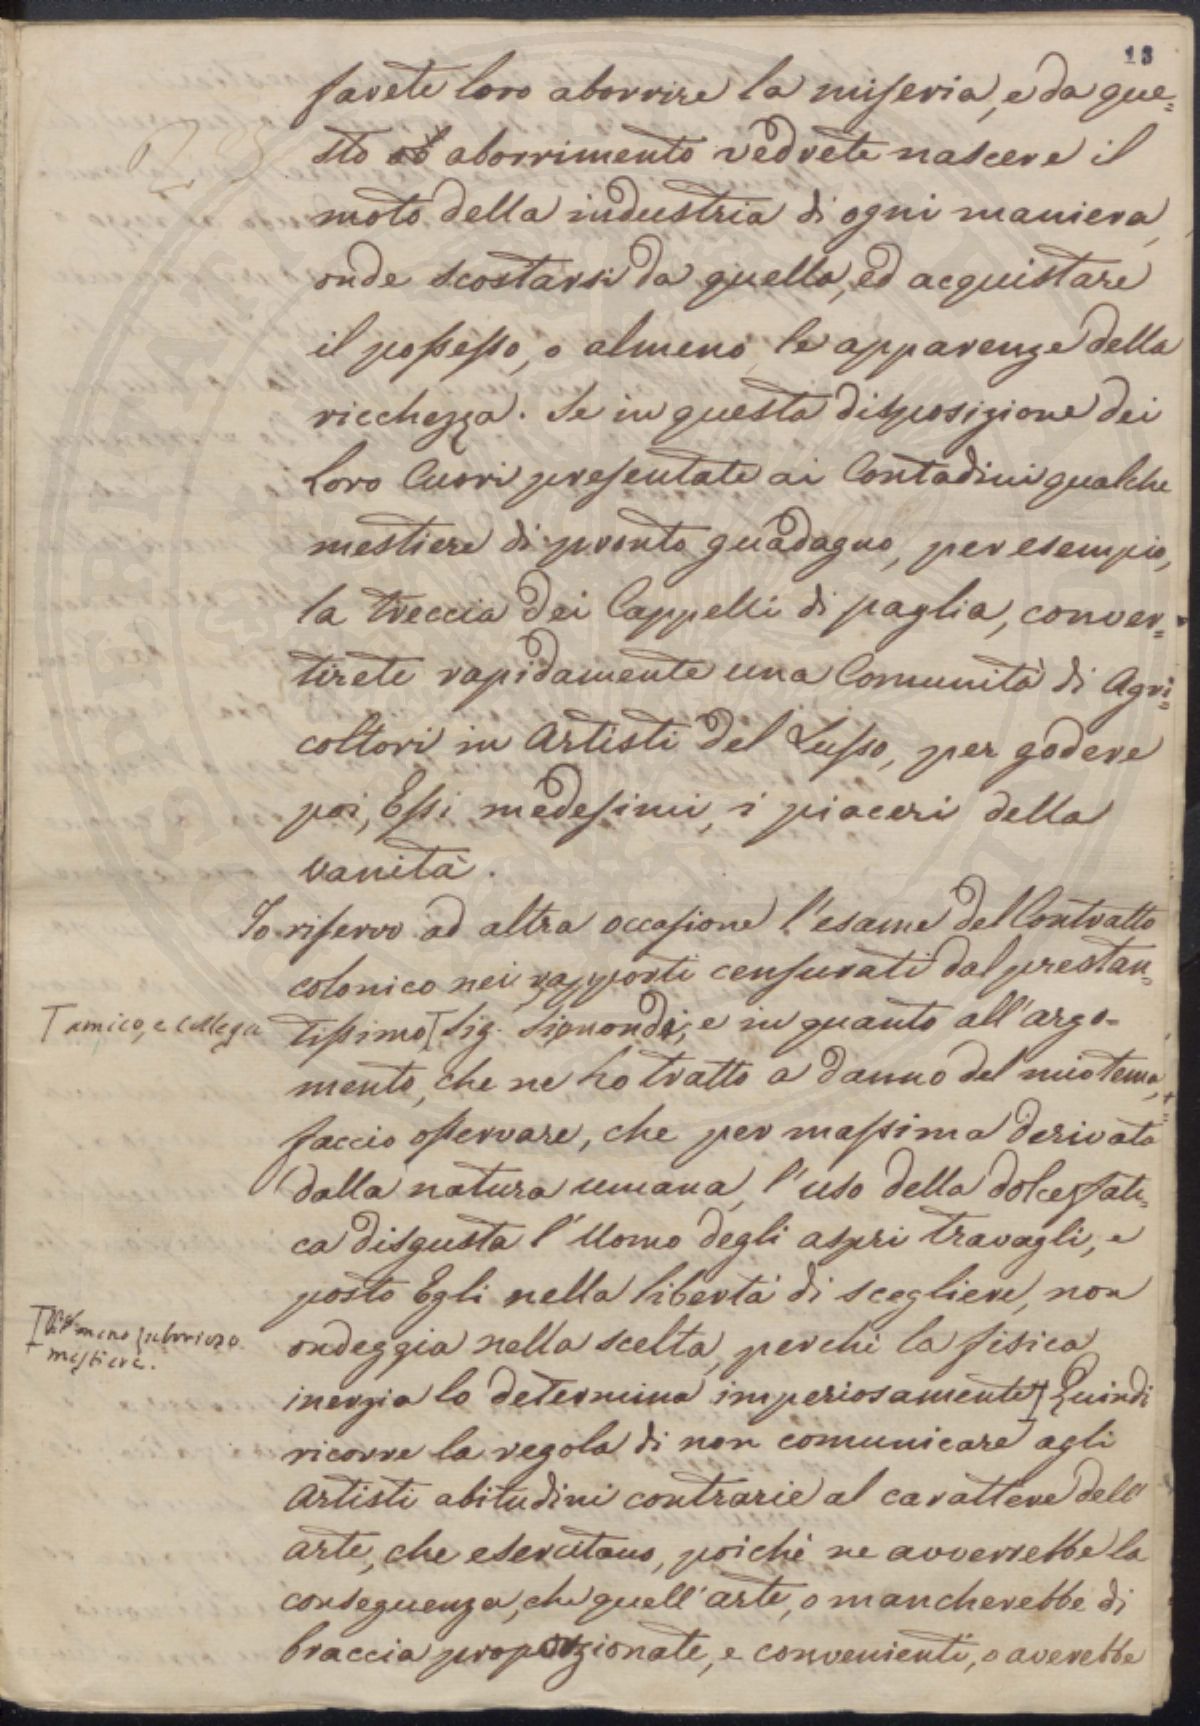 13
farete loro aborrire la miseria, e da que=
sto aborrimento vedrete nascere il
moto della industria di ogni maniera,
onde scostarsi da quella, ed acquistare
il possesso, o almeno le apparenze della
ricchezza. Se in questa disposizione dei
loro Cuori presentate ai Contadini qualche
mestiere di pronto guadagno, per esempio,
la treccia dei Cappelli di paglia, conver=
tirete rapidamente una Comunità di Agri=
coltori in Artisti del Lusso, per godere
poi, Essi medesimi, i piaceri della
vanità.
Io riservo ad altra occasione l'esame del Contratto
colonico nei rapporti censurati dal prestan=
tissimo Sig. Sismondi, e in quanto all'argo=
amico, e collega
mento, che ne ho tratto a danno del mio tema,
faccio osservare, che per massima derivata
dalla natura umana, l'uso della dolce fati=
ca disgusta l'Uomo degli aspri travagli, e
posto Egli nella libertà di scegliere, non
ondeggia nella scelta, perchè la fisica
meno laborioso
mestiere.
inerzia lo determina imperiosamente Quindi
ricorre la regola di non comunicare agli
Artisti abitudini contrarie al carattere dell'
arte, che esercitano, poichè ne avverrebbe la
conseguenza, che quell'arte, o mancherebbe di
braccia proporzionate, e convenienti, o averebbe